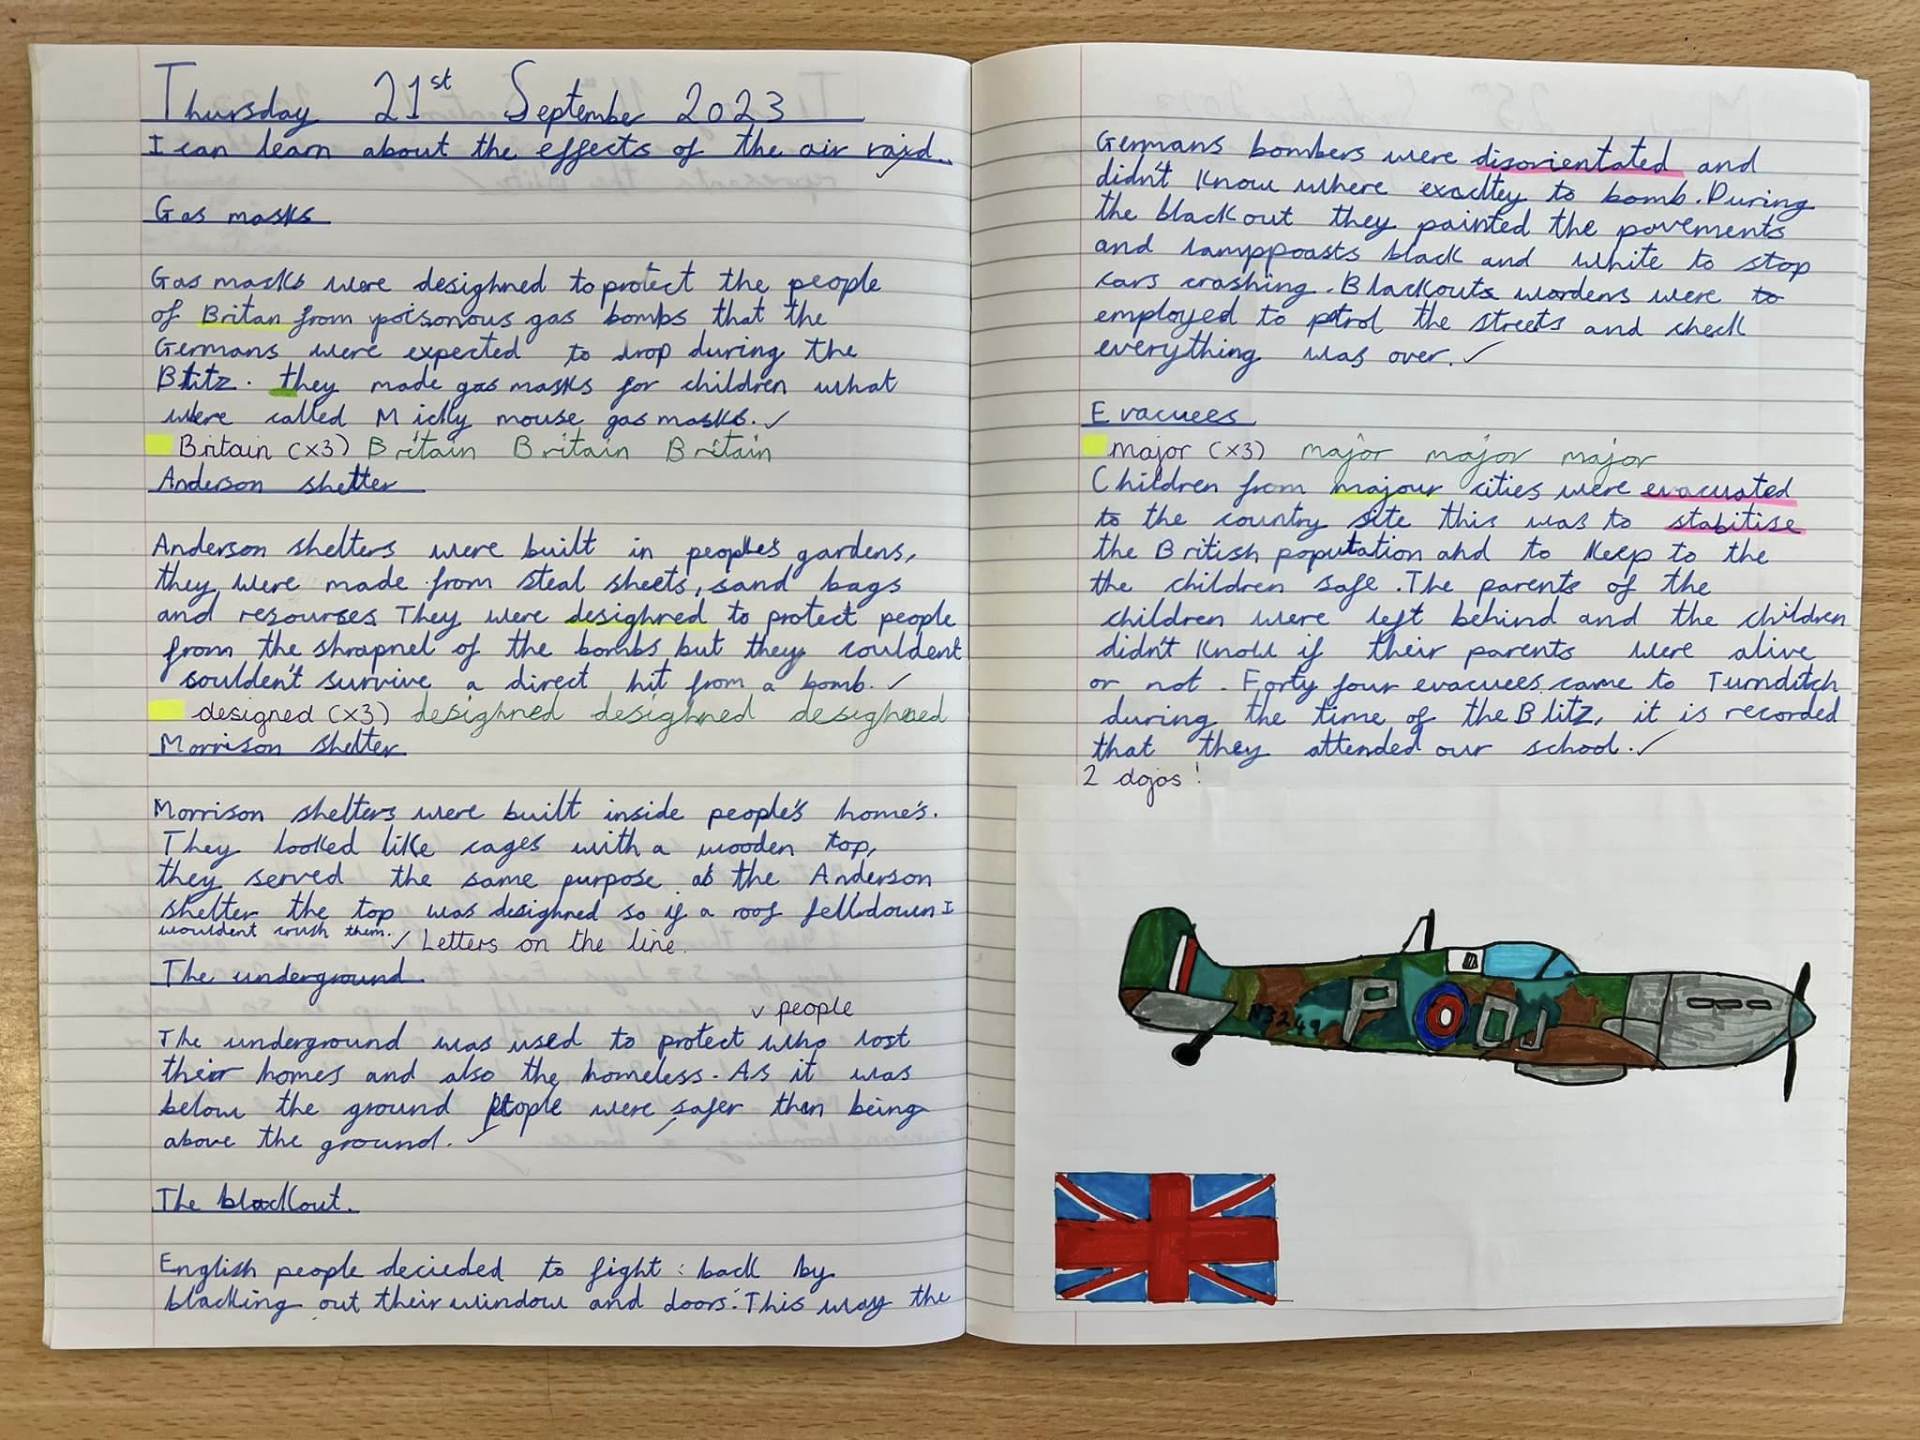 Thursday 21st September 2023
I can learn about the effects of the air raid.
Gas masks
Gas masks were desighned to protect the people
of Britan from poisonous gas bombs that the
Germans were expected to drop during the
Blitz. they made gas masks for children what
were called Micky mouse gas masks. ✓
Britain (x3) Britain Britain Britain
Anderson shelter
Anderson shelters were built in people's gardens,
they were made from steal sheets, sand bags
and resourses They were desighned to protect people
from the shrapnel of the bombs but they couldent
soulden't survive a direct hit from a bomb. ✓
designed (x3) desighned desighned desighned
Morrison shelter
Morrison shelters were built inside people's home's.
They looked like cages with a wooden top,
they served the same purpose as the Anderson
shelter the top was desighned so if a roof fell down I
wouldent crush them. ✓ Letters on the line.
The underground
✓ people
The underground was used to protect who lost
their homes and also the homeless. As it was
below the ground people were safer than being
above the ground. ✓
The blackout.
English people decieded to fight back by
blacking out their window and doors. This way the
Germans bombers were disorientated and
didn't know where exacltey to bomb. During
the blackout they painted the pavements
and lamppoasts black and white to stop
cars crashing. Blackouts wardens were to
employed to ptrol the streets and check
everything was over. ✓
Evacuees
major (x3) major major major
Children from majour cities were evacuated
to the country site this was to stabilise
the British population and to keep to the
the children safe. The parents of the
children were left behind and the children
didn't know if their parents were alive
or not. Forty four evacuees came to Turnditch
during the time of the Blitz, it is recorded
that they attended our school. ✓
2 dojos!
N3249 P DJ